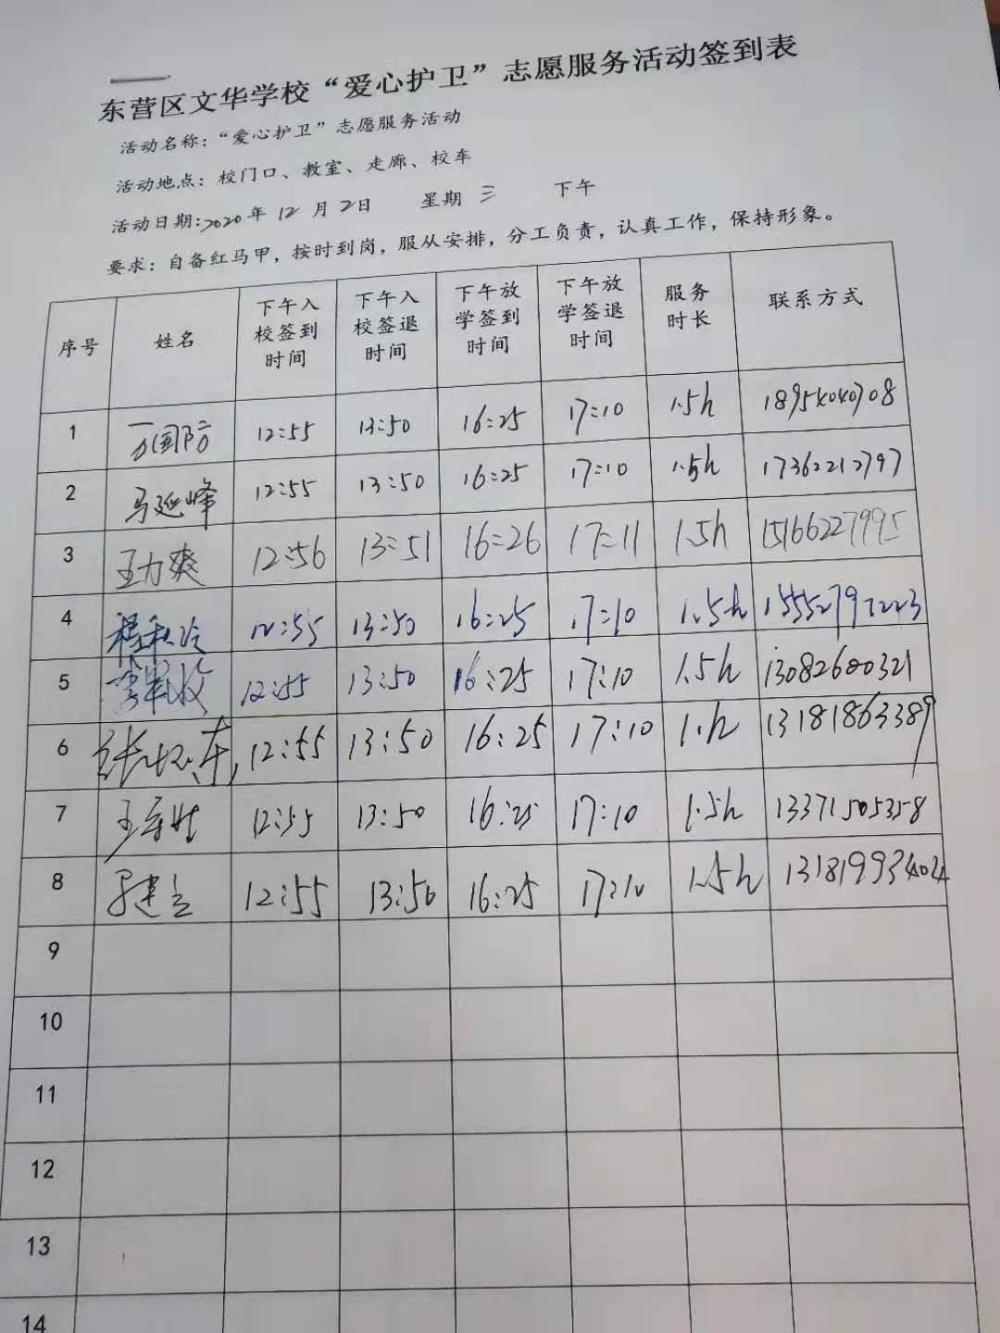 东营区文华学校“爱心护卫”志愿服务活动签到表
活动名称：“爱心护卫”志愿服务活动
活动地点：校门口、教室、走廊、校车
活动日期：2020年 12月 2日 星期 三 下午
要求：自备红马甲，按时到岗，服从安排，分工负责，认真工作，保持形象。
序号 姓名 下午入校签到时间 下午入校签退时间 下午放学签到时间 下午放学签退时间 服务时长 联系方式
1 万国防 12:55 13:50 16:25 17:10 1.5h 18954040708
2 马延峰 12:55 13:50 16:25 17:10 1.5h 17362212797
3 王力爽 12:56 13:51 16:26 17:11 1.5h 15166227995
4 12:55 13:50 16:25 17:10 1.5h 15552797223
5 12:55 13:50 16:25 17:10 1.5h 13082600321
6 12:55 13:50 16:25 17:10 1.h 13181863389
7 12:55 13:50 16:25 17:10 1.5h 13371505358
8 12:55 13:50 16:25 17:10 1.5h 13181993404
9
10
11
12
13
14